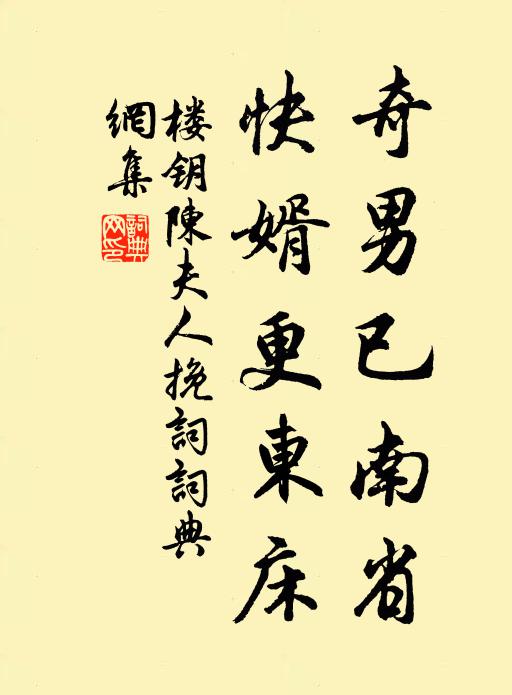 奇男已南省
快婿更東床
楼钥陳夫人挽詞詞典
網集
詞典
网印